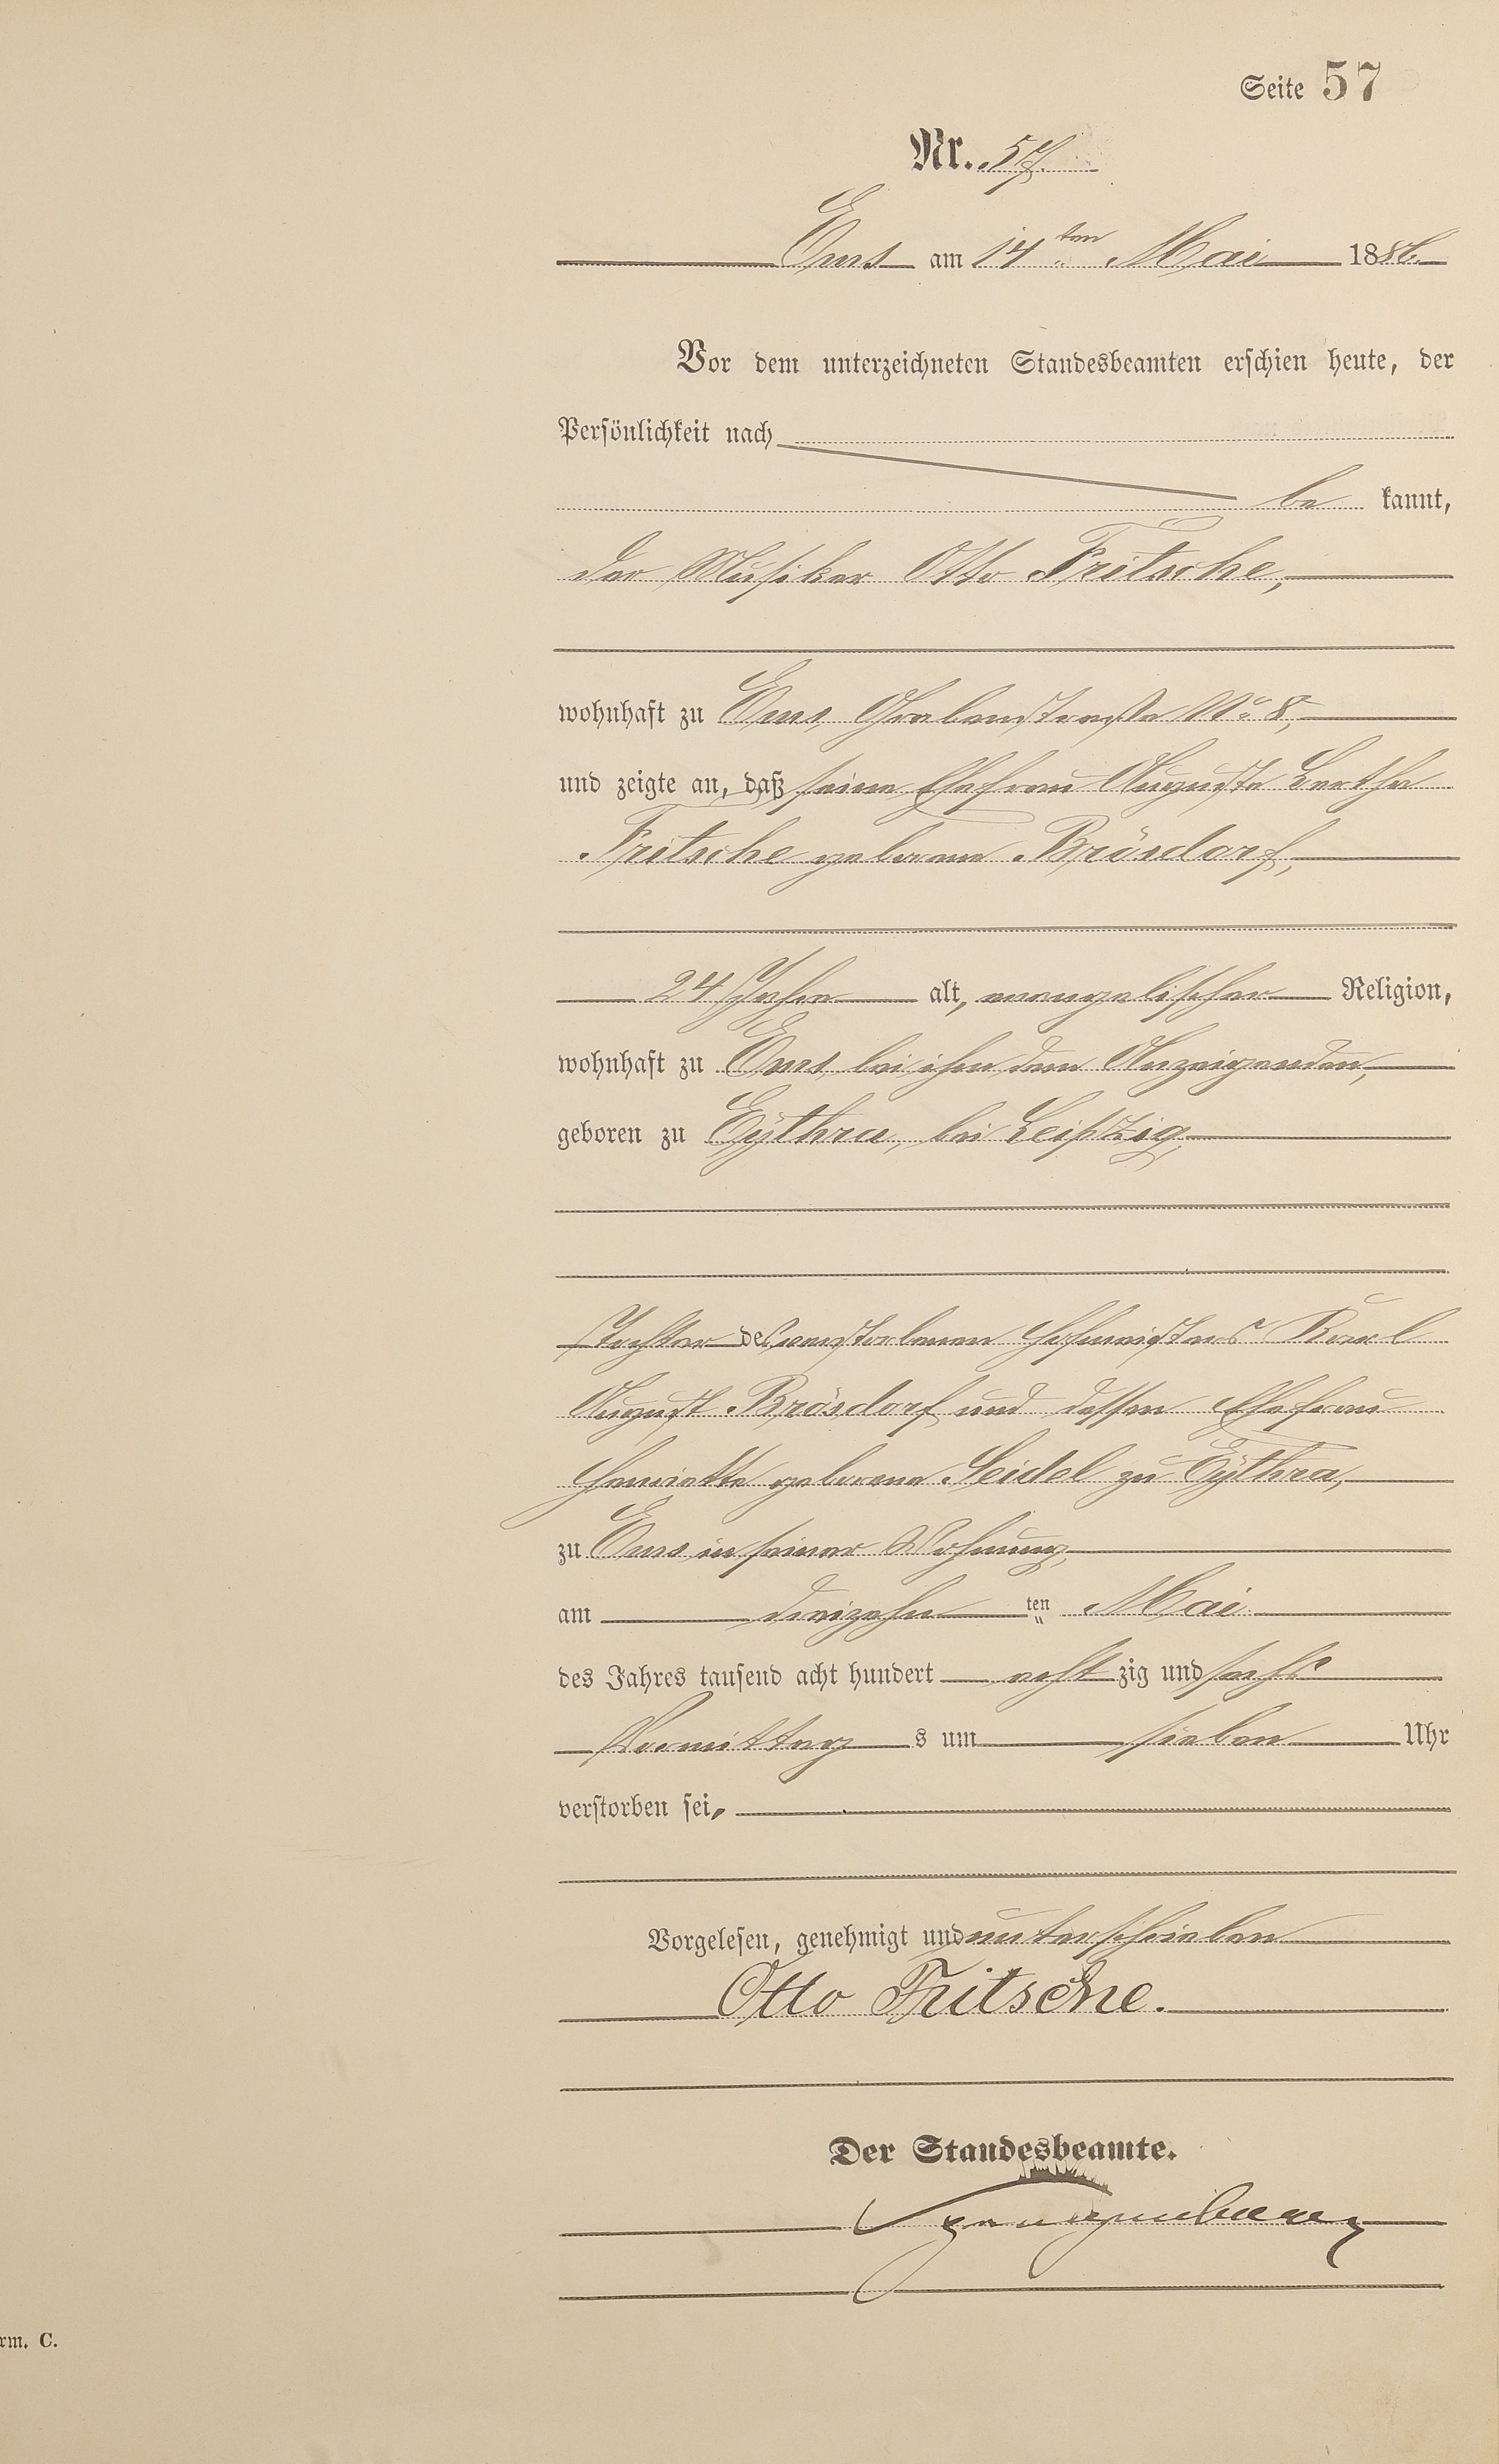 Seite 57
Nr. 57.
Ems am 14ten Mai 1886.
Vor dem unterzeichneten Standesbeamten erschien heute, der
Persönlichkeit nach
be kannt,
der Musiker Otto Fritsche,
wohnhaft zu Ems, Grabenstraße No 8,
und zeigte an, daß seine Ehefrau Auguste Bertha
Fritsche geborene Brösdorf,
24 Jahre alt, evangelischer Religion,
wohnhaft zu Ems, bei ihm dem Anzeigenden,
geboren zu Eÿthra, bei Leipzig,
Tochter des verstorbenen Hofmeisters Karl
August Brösdorf und dessen Ehefrau
Henriette geborene Seidel zu Eÿthra,
zu Ems in seiner Wohnung,
am dreizehn ten Mai
des Jahres tausend acht hundert acht zig und sechs
Vormittag s um sieben Uhr
verstorben sei.
Vorgelesen, genehmigt und unterschrieben
Otto Fritsche.
Der Standesbeamte.
rm. C.